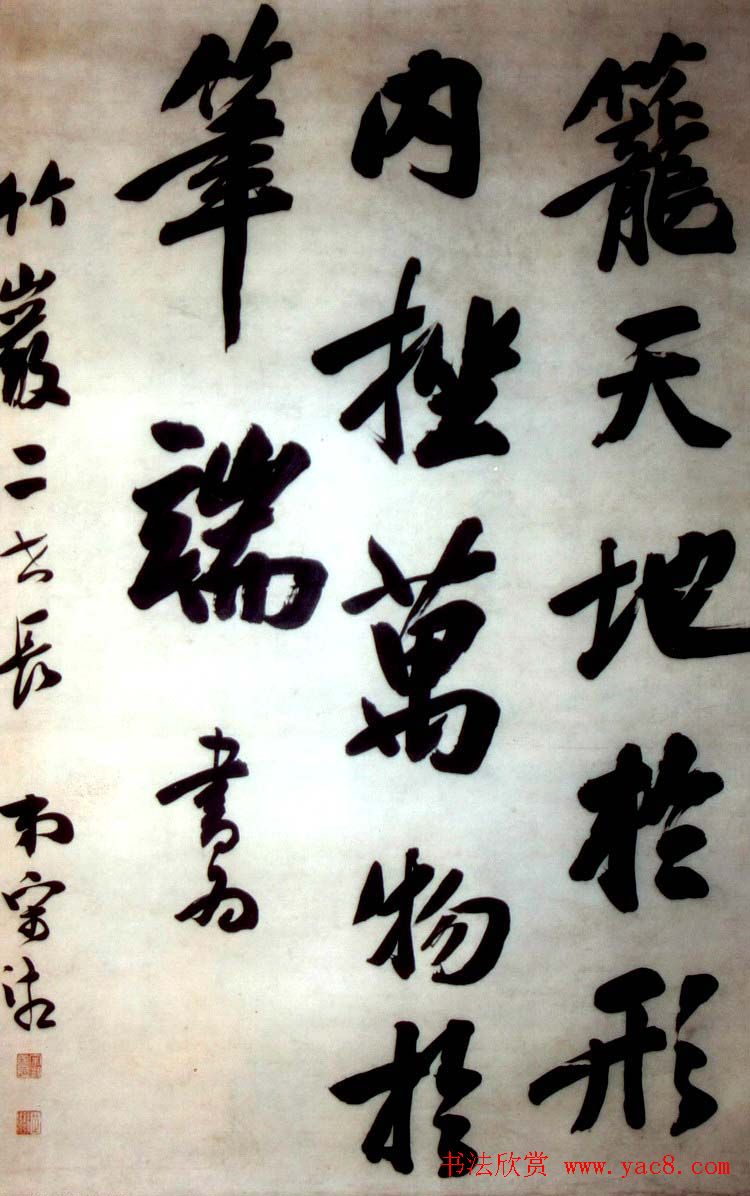 籠天地於形
内挫萬物於
筆端 書為
竹巖二世長 弟宋湘
书法欣赏 www.yac8.com